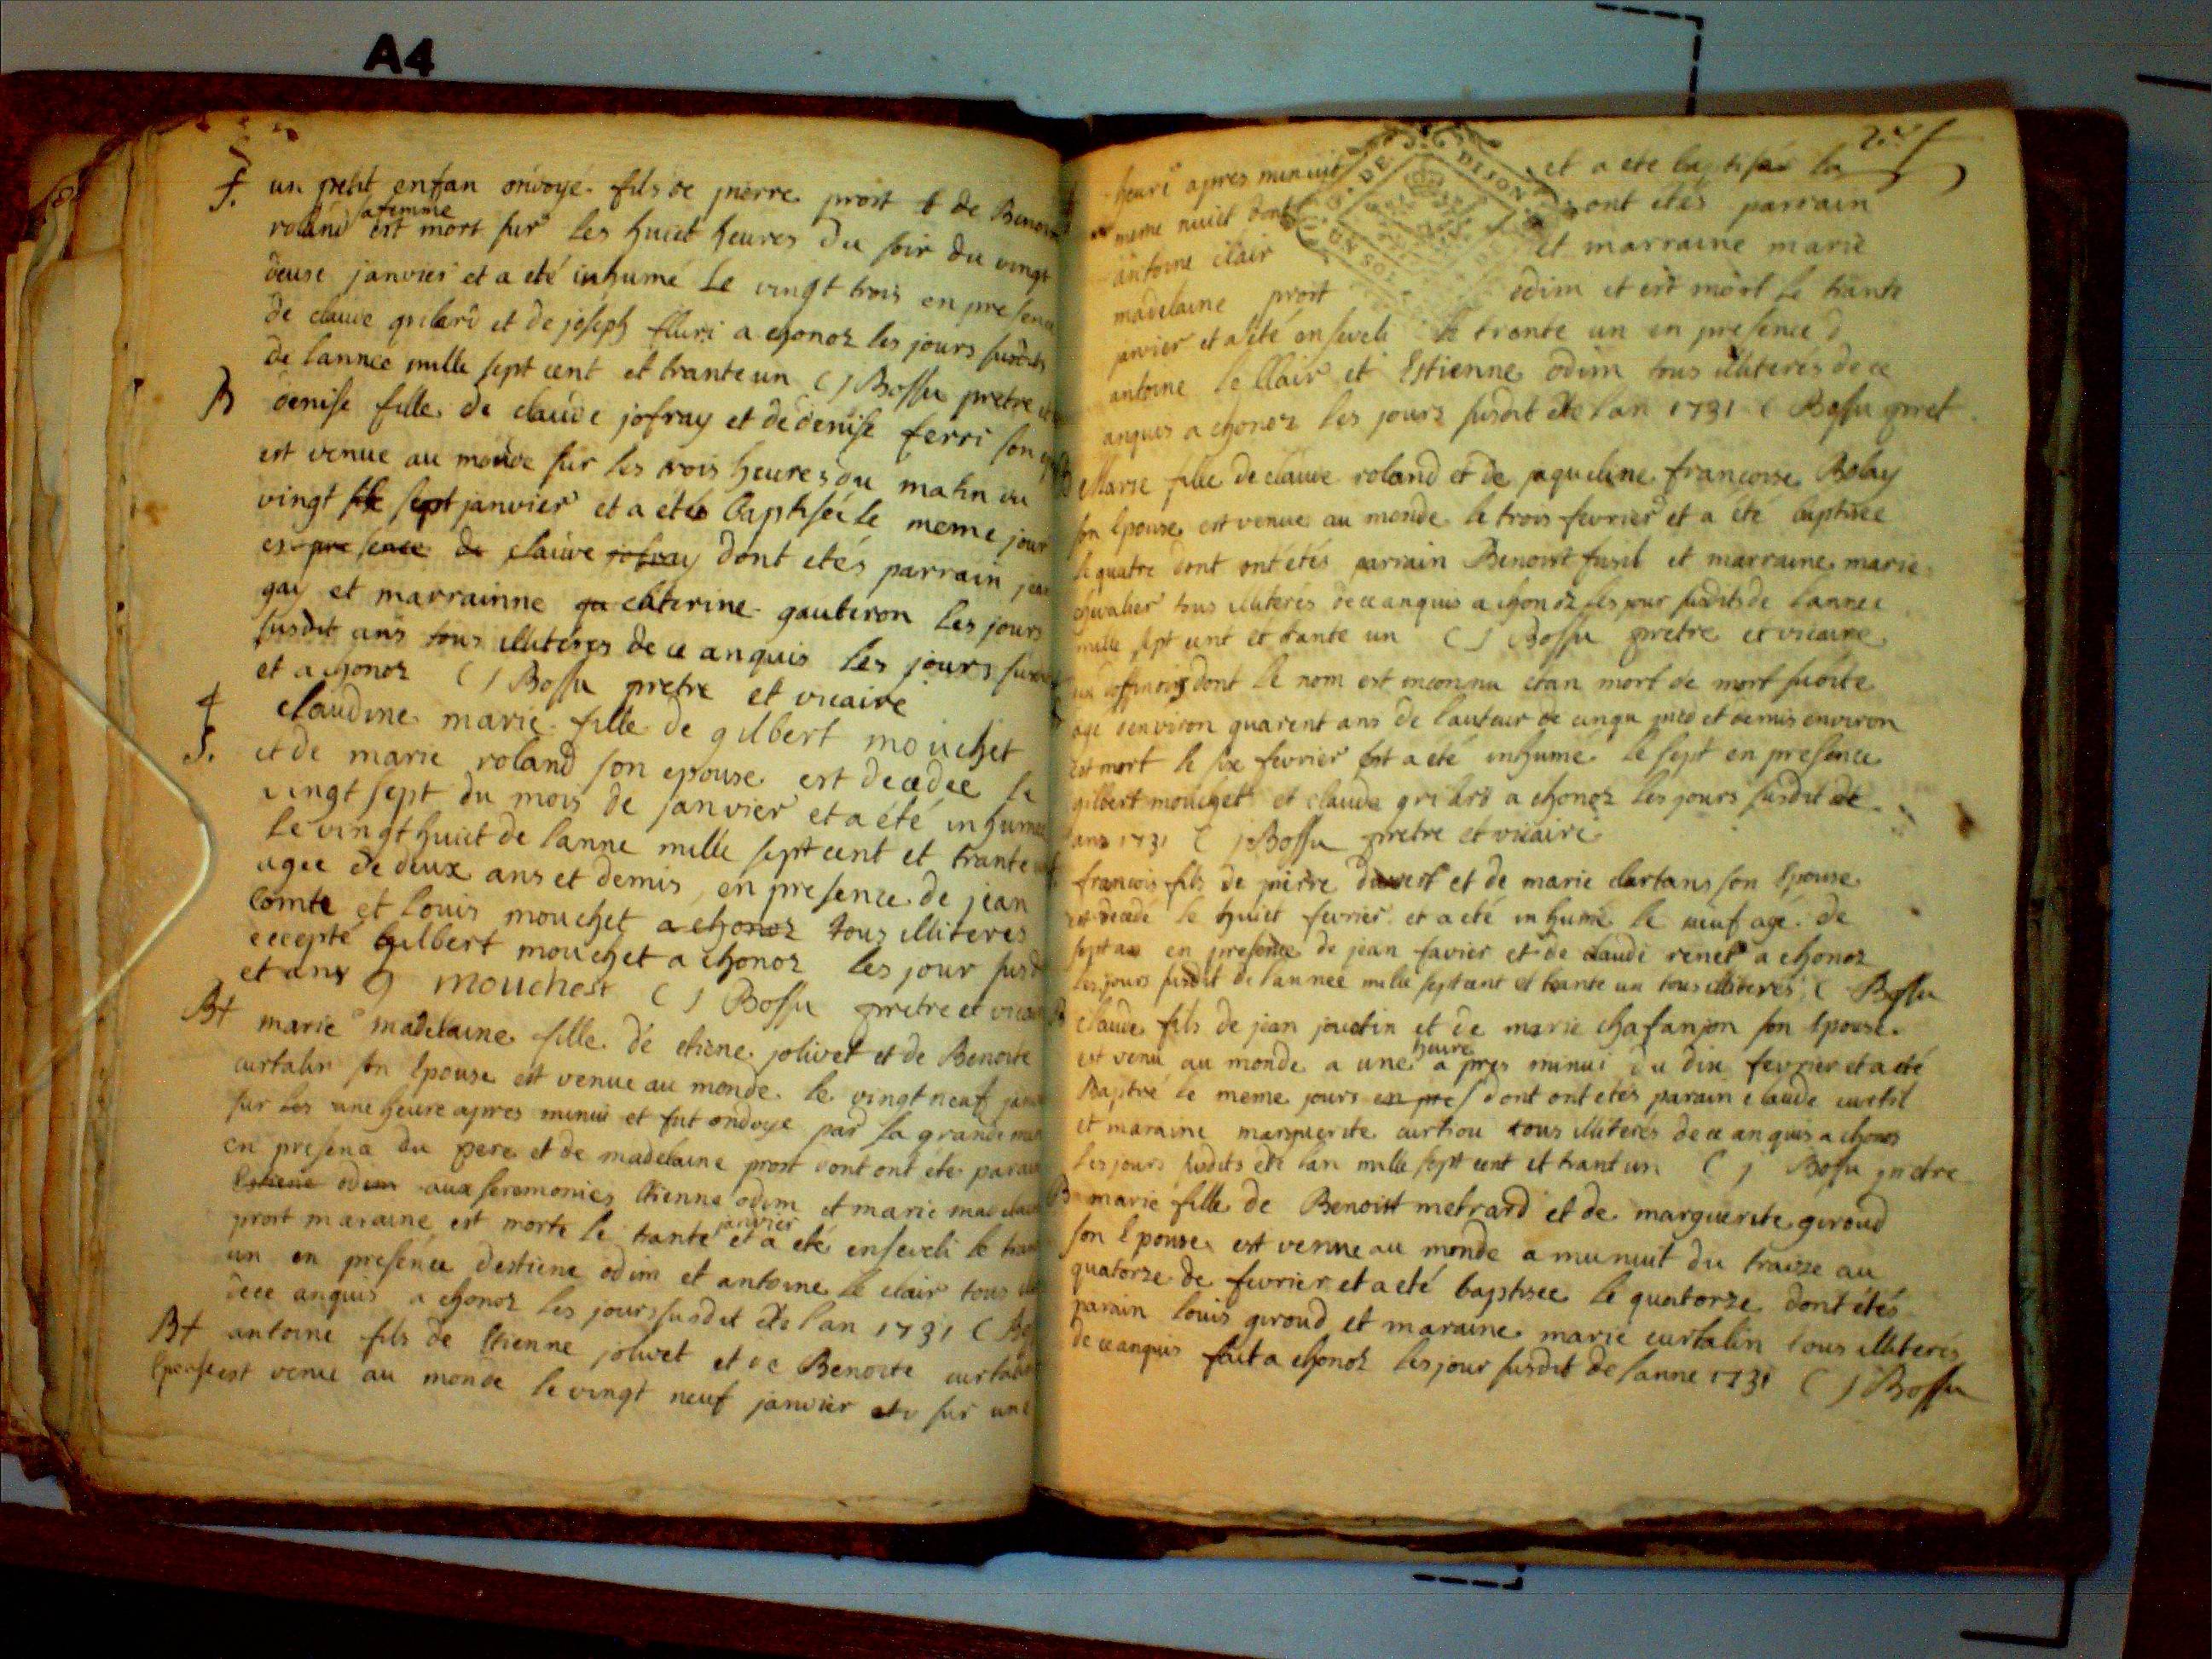 A4
f. un petit enfan onvoyé fils de pierre prost & de Benoi
roland sa femme est mort sur les huict heures du soir du vingt
deuse janvier et a eté inhumé le vingt trois en presen
de claude grilard et de joseph fluri a chonoz les jours susdits
de lannee mille sept cent et trante un C J Bossu pretre
B denise fille de claude jofray et de denise ferri son
est venue au monde sur les trois heures du matin du
vingt sept janvier et a eté baptisée le meme jour
en presence de claude jofray dont etés parrain jean
gay et marrainne ga caterine gauteron les jours
susdit ans tous illiterés de ce anquis les jours sus
et a chonoz C J Bossu pretre et vicaire
f. claudine marie fille de gilbert mouchet
et de marie roland son epouse est decedee le
vingt sept du mois de janvier et a été inhumee
le vingt huict de lanne mille sept cent et trante
agee de deux ans et demis en presence de jean
comte et louis mouchet a chonoz tous illiteres
eccepté gilbert mouchet a chonoz les jour susd
et ans g mouchost C J Bossu pretre et vicai
B+ marie madelaine fille de etiene jolivet et de Benoite
curtalin son epouse est venue au monde le vingt neuf janv
sur les une heure apres minui et fut ondoye par la grande
en presence du pere et de madelaine prost dont ont éte parain
Estiene odim aux seremonies Etienne odim et marie madelain
prost maraine est morte le trante janvier et a eté enseveli le tran
un en presence destiene odim et antoine le clair tous
de ce anquis a chonoz les jours susdit de lan 1731 C
B+ antoine fils de Etienne jolivet et de Benoite curtalin
epouse est venu au monde le vingt neuf janvier sur une
heure apres minuit et a ete baptisér la
meme nuict dont ont étés parrain
antoine clair et marraine marie
madelaine prost odim et est mort le trante
janvier et a été enseveli le trente un en presence d
antoine le Clair et Estienne odim tous illiterés de ce
anquis a chonoz les jours susdit de lan 1731 C Bossu pret
DE DIJON
UN SOL
Marie fille de claude roland et de jaqueline francoise Bolay
son epouse est venue au monde le trois fevrier et a été baptisee
le quatre dont ont étés parrain Benoist fusil et marraine marie
chevalier tous illiterés de ce anquis a chonoz les jour susdits de lannee
mille sept cent et trante un C J Bossu pretre et vicaire
dont le nom est inconnu etan mort de mort subite
age denviron quarent ans de lauteur de cinqu pied et demis environ
est mort le six fevrier et a eté inhumé le sept en presence
gilbert mouchet et claude grilard a chonoz les jours susdit de
lans 1731 C J Bossu pretre et vicaire
francois fils de pierre et de marie son Epouse
est decedé le huict fevrier et a eté inhumé le neuf agé de
sept ans en presence de jean favier et de claude renet a chonoz
les jours susdit de lannee mille sept cent et trante un tous illiterés C Bossu
B claude fils de jean jouctin et de marie chafanjon son Epouse
est venu au monde a une heure apres minui du dix fevrier et a eté
Baptisé le meme jours en pres dont ont etés parain claude curtil
et maraine marguerite curtiou tous illiterés de ce anquis a chonoz
les jours susdits de lan mille sept cent et trant un C J Bossu pretre
B marie fille de Benoist metrard et de marguerite giroud
son Epouse est venue au monde a minuit du traize au
quatorze de fevrier et a eté baptisee le quatorze dont étés
parain louis giroud et maraine marie curtalin tous illiterés
de ce anquis fait a chonoz les jour susdit de lanne 1731 C J Bossu